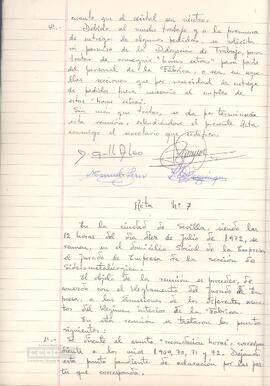 cuanto que el cristal sea cierto.
4º.- Debido al mucho trabajo y a la premura
de entrega de algunos pedidos, se solicita
el permiso de la Delegación de Trabajo, para
tratar de conseguir "horas extras" para parte
del personal de la Fábrica, o sea, en aque-
llas secciones que por necesidad de entrega
de pedidos fuese necesario el empleo de
estas "horas extras".
Sin más que tratar, se da por terminada
esta reunión, extendiéndose el presente Acta,
conmigo el secretario que certifico.
Acta Nº 7
En la ciudad de Sevilla, siendo las
12 horas del día de Julio de 1972, se
reunen, en el domicilio social de la Empresa,
el Jurado de Empresa de la sección de
Siderometalúrgica:
El objeto de la reunión es proceder, de
acuerdo con el Reglamento del Jurado de Em-
presa, a las de los diferentes asun-
tos del Régimen interior de la Fábrica.
En esta reunión se trataron los puntos
siguientes:
1º.- Se discute el asunto "recuperación horas", correspon-
diente a los años 1969, 70, 71 y 72. Dejando
este punto pendiente de aclaración por las par-
tes que corresponda.